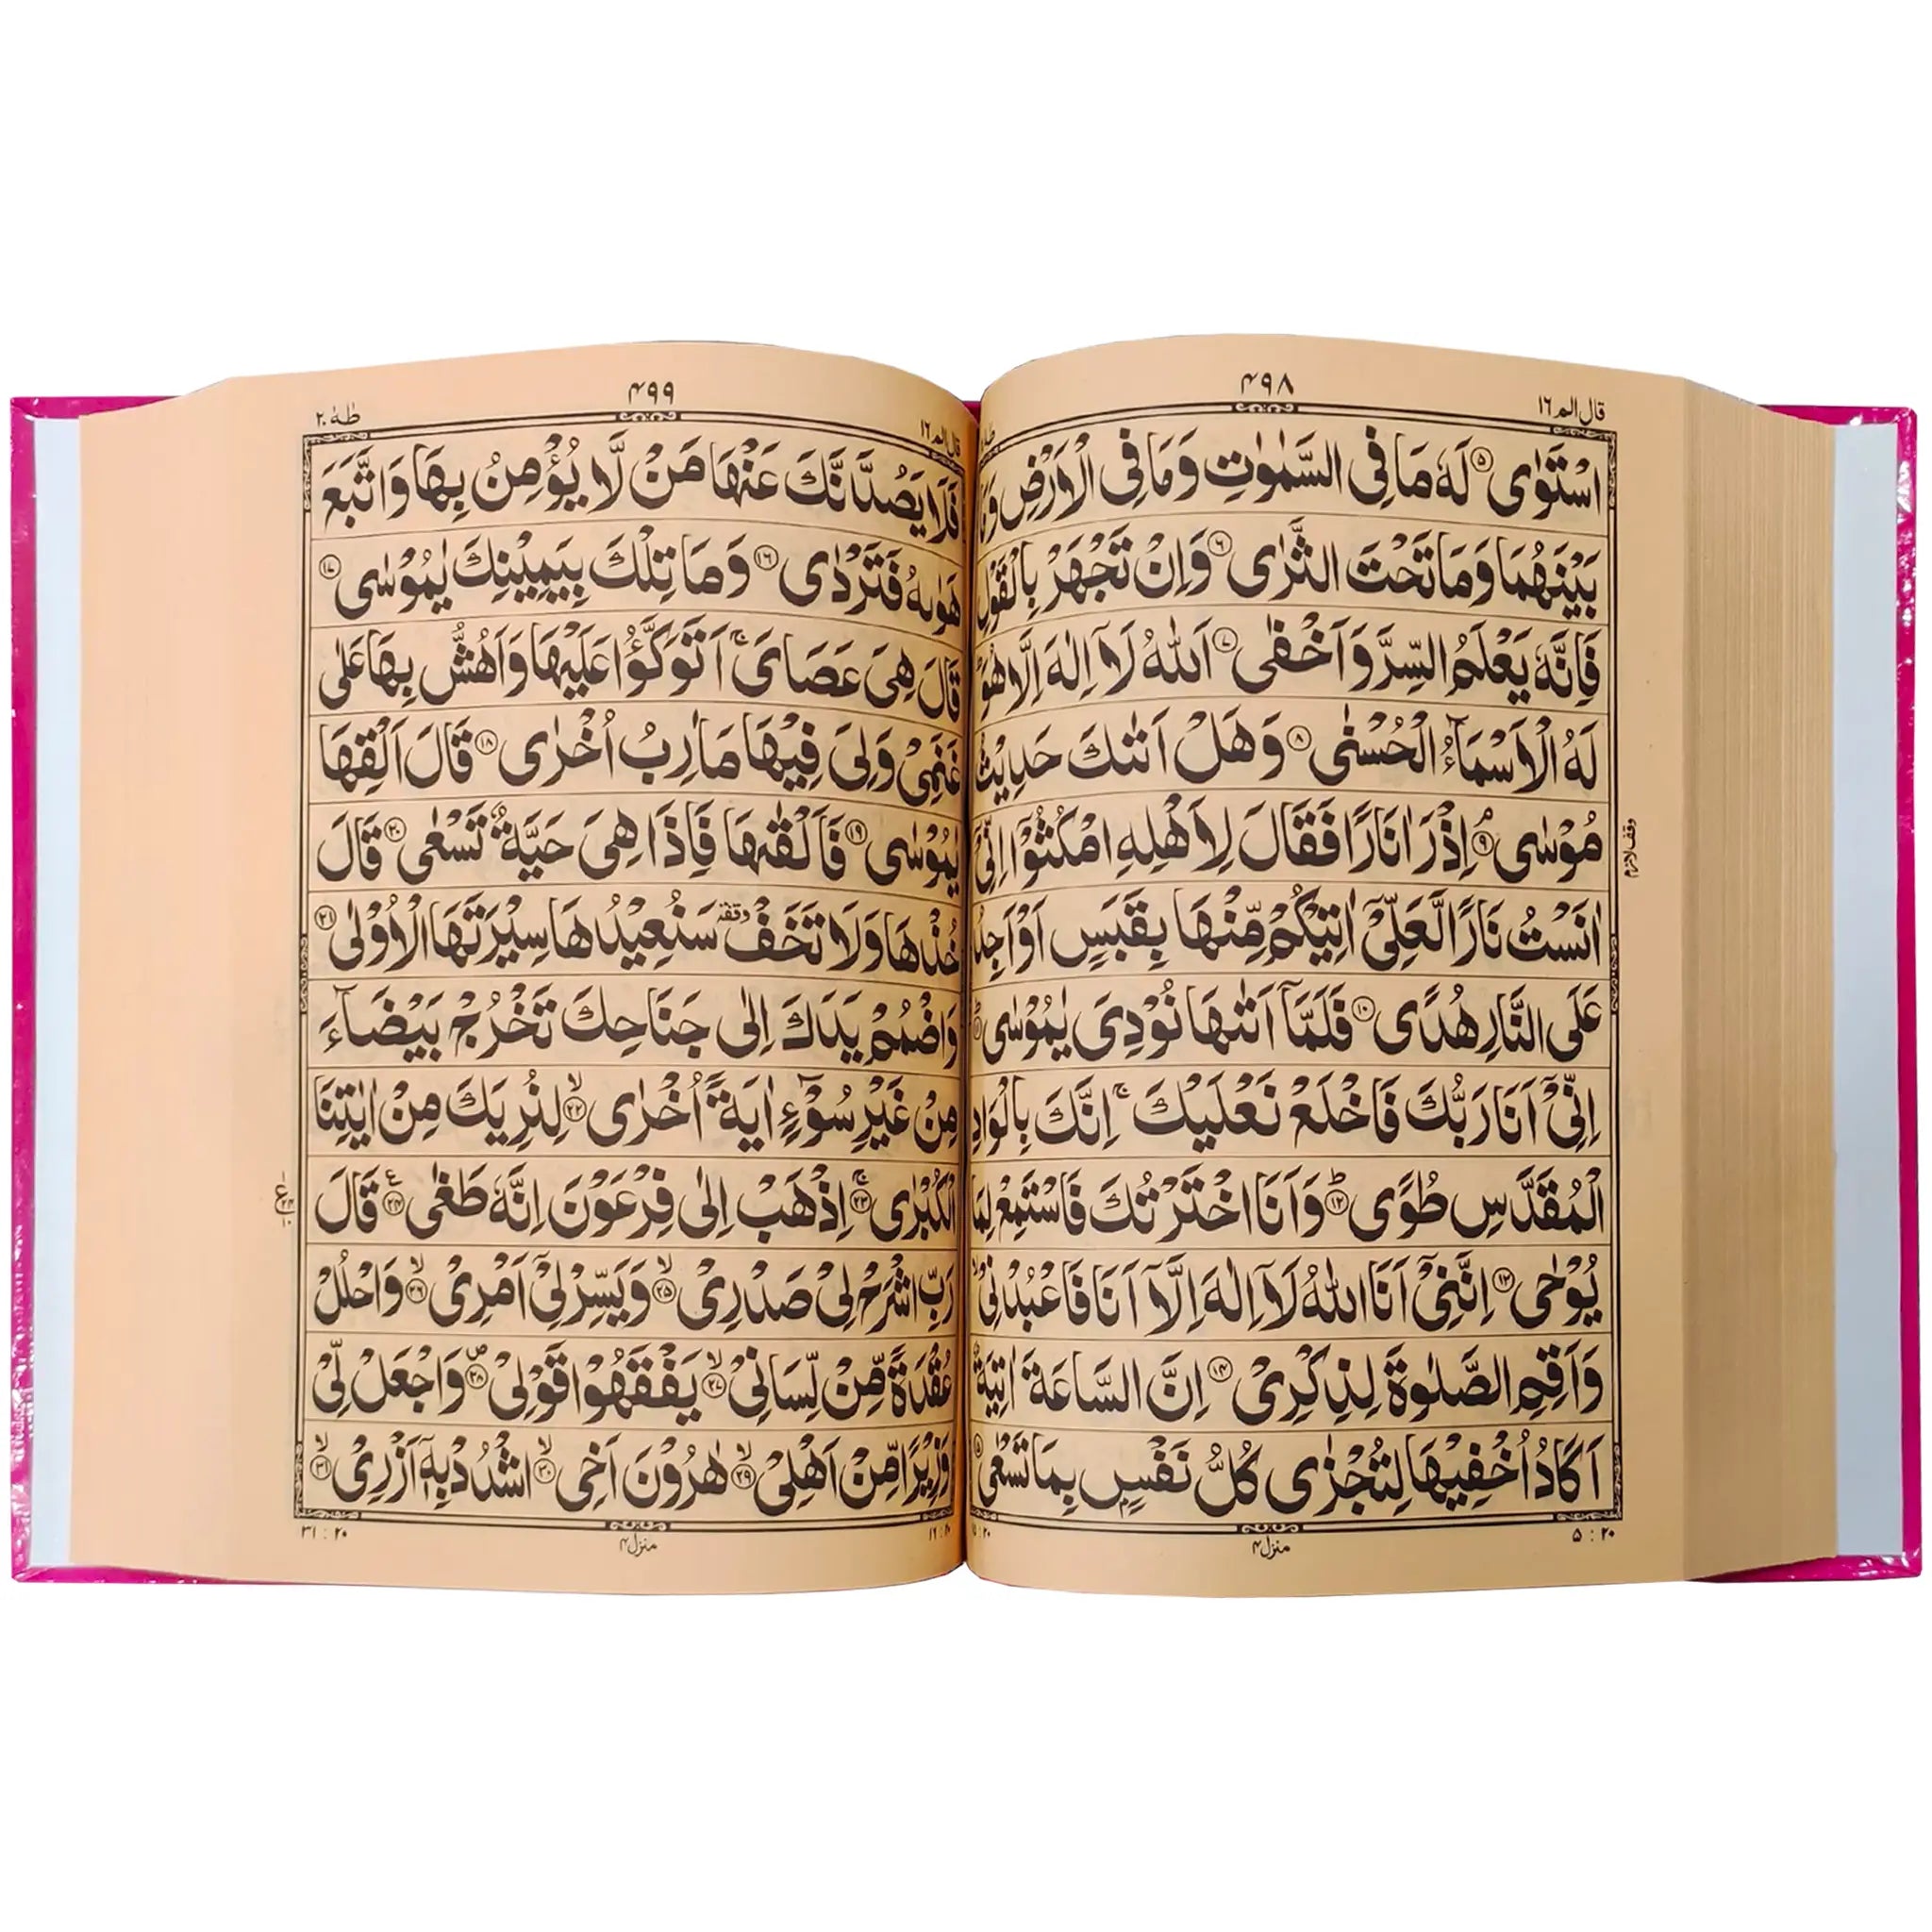 قال الم ١٦
۴۹۸
اسْتَوٰى ۵ لَهٗ مَا فِى السَّمٰوٰتِ وَمَا فِى الْاَرْضِ وَمَا
بَيْنَهُمَا وَمَا تَحْتَ الثَّرٰى ۶ وَاِنْ تَجْهَرْ بِالْقَوْلِ
فَاِنَّهٗ يَعْلَمُ السِّرَّ وَاَخْفٰى ۷ اَللّٰهُ لَاۤ اِلٰهَ اِلَّا هُوَ
لَهُ الْاَسْمَآءُ الْحُسْنٰى ۸ وَهَلْ اَتٰىكَ حَدِيْثُ
مُوْسٰى ۹ اِذْ رَاٰ نَارًا فَقَالَ لِاَهْلِهِ امْكُثُوْۤا اِنِّىْۤ
اٰنَسْتُ نَارًا لَّعَلِّىْۤ اٰتِيْكُمْ مِّنْهَا بِقَبَسٍ اَوْ اَجِدُ
عَلَى النَّارِ هُدًى ۱۰ فَلَمَّاۤ اَتٰىهَا نُوْدِىَ يٰمُوْسٰى
اِنِّىْۤ اَنَا رَبُّكَ فَاخْلَعْ نَعْلَيْكَ ۚ اِنَّكَ بِالْوَادِ
الْمُقَدَّسِ طُوًى ۱۲ وَاَنَا اخْتَرْتُكَ فَاسْتَمِعْ لِمَا
يُوْحٰى ۱۳ اِنَّنِىْۤ اَنَا اللّٰهُ لَاۤ اِلٰهَ اِلَّاۤ اَنَا فَاعْبُدْنِىْ
وَاَقِمِ الصَّلٰوةَ لِذِكْرِىْ ۱۴ اِنَّ السَّاعَةَ اٰتِيَةٌ
اَكَادُ اُخْفِيْهَا لِتُجْزٰى كُلُّ نَفْسٍ بِمَا تَسْعٰى
وقف لازم
۵ : ۲۰
منزل ۴
قال الم ١٦
۴۹۹
طٰهٰ ۲۰
فَلَا يَصُدَّنَّكَ عَنْهَا مَنْ لَّا يُؤْمِنُ بِهَا وَاتَّبَعَ
هَوٰىهُ فَتَرْدٰى ۱۶ وَمَا تِلْكَ بِيَمِيْنِكَ يٰمُوْسٰى ۱۷
قَالَ هِىَ عَصَاىَ ۚ اَتَوَكَّؤُا عَلَيْهَا وَاَهُشُّ بِهَا عَلٰى
غَنَمِىْ وَلِىَ فِيْهَا مَاٰرِبُ اُخْرٰى ۱۸ قَالَ اَلْقِهَا
يٰمُوْسٰى ۱۹ فَاَلْقٰىهَا فَاِذَا هِىَ حَيَّةٌ تَسْعٰى ۲۰ قَالَ
خُذْهَا وَلَا تَخَفْ وقفة سَنُعِيْدُهَا سِيْرَتَهَا الْاُوْلٰى ۲۱
وَاضْمُمْ يَدَكَ اِلٰى جَنَاحِكَ تَخْرُجْ بَيْضَآءَ
مِنْ غَيْرِ سُوْٓءٍ اٰيَةً اُخْرٰى ۲۲ۙ لِنُرِيَكَ مِنْ اٰيٰتِنَا
الْكُبْرٰى ۲۳ۚ اِذْهَبْ اِلٰى فِرْعَوْنَ اِنَّهٗ طَغٰى ۲۴ قَالَ
رَبِّ اشْرَحْ لِىْ صَدْرِىْ ۲۵ۙ وَيَسِّرْ لِىْۤ اَمْرِىْ ۲۶ۙ وَاحْلُلْ
عُقْدَةً مِّنْ لِّسَانِىْ ۲۷ۙ يَفْقَهُوْا قَوْلِىْ ۲۸ وَاجْعَلْ لِّىْ
وَزِيْرًا مِّنْ اَهْلِىْ ۲۹ۙ هٰرُوْنَ اَخِى ۳۰ۙ اشْدُدْ بِهٖۤ اَزْرِىْ ۳۱ۙ
۱۶ : ۲۰
منزل ۴
۳۱ : ۲۰